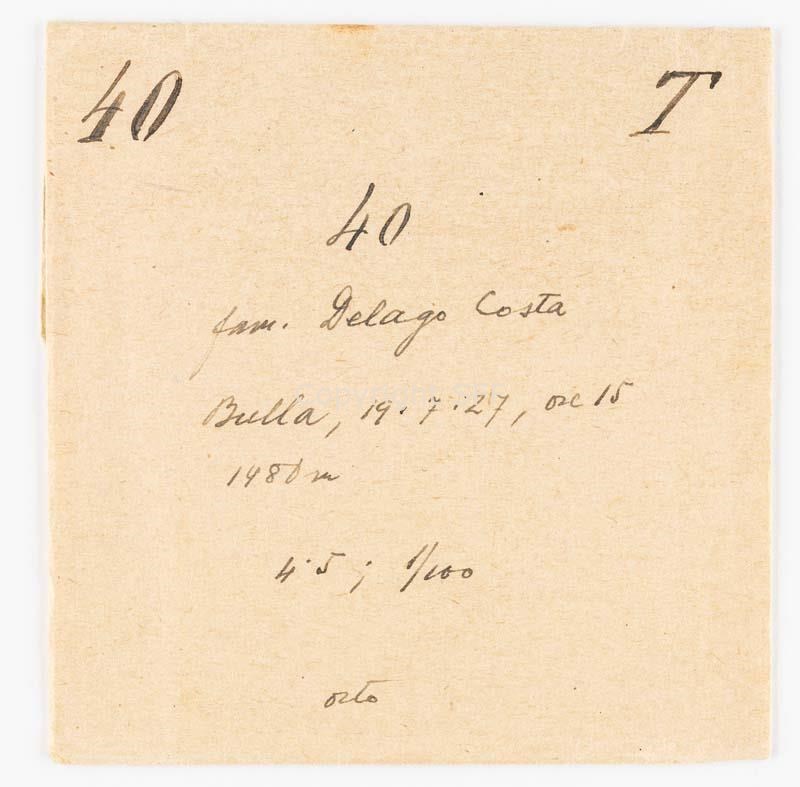 40 T
40
fam. Delago Costa
Bulla, 19.7.27, ore 15
1480 m
4.5 ; 1/100
orto